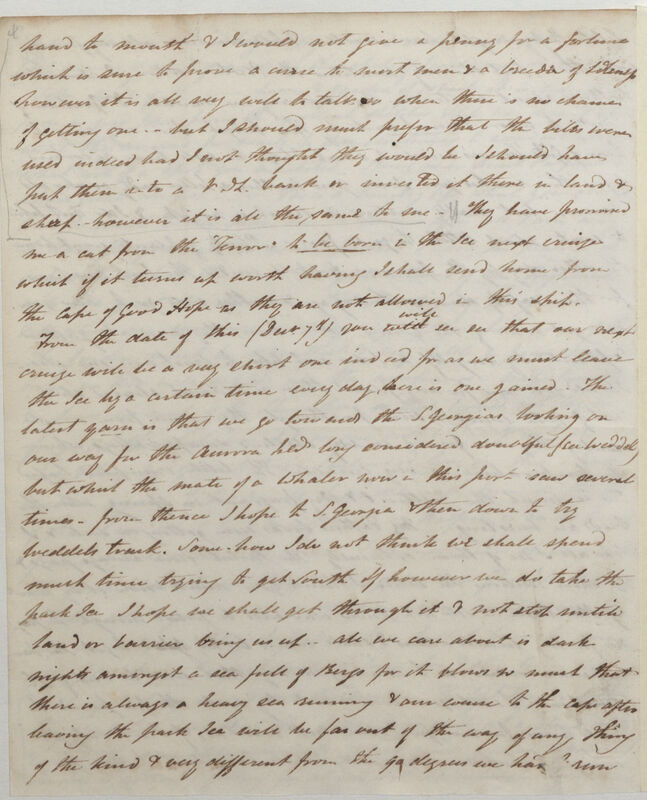 hand to mouth & I would not give a penny for a fortune
which is sure to prove a curse to most men & a breeder of
however it is all very well to talk so when there is no chance
of getting one - but I should much prefer that the bills were
used indeed had I not thought they would be I should have
put them into a V.D.L. bank or invested it there in land &
sheep - however it is all the same to me - They have promised
me a cat from the "Terror" to be born in the Ice next cruize
which if it turns up worth having I shall send home from
the Cape of Good Hope as they are not allowed in this ship.
From the date of this (Decr 7th) you will see that our next
cruize will be a very short one indeed for as we must leave
the Ice by a certain time every day here is one gained. The
latest yarn is that we go towards the S. Georgias looking on
our way for the Aurora Ilds long considered doubtful (see Weddel)
but which the mate of a Whaler now in this port saw several
times - from thence I hope to S. Georgia & then down to try
Weddels track. Some-how I do not think we shall spend
much time trying to get South if however we do take the
pack Ice I hope we shall get through it & not stop until
land or barrier bring us up - all we care about is dark
nights amongst a sea full of Bergs for it blows so much that
there is always a heavy sea running & our course to the Cape after
leaving the pack Ice will be far out of the way of any thing
of the kind & very different from the 90 degrees we have run